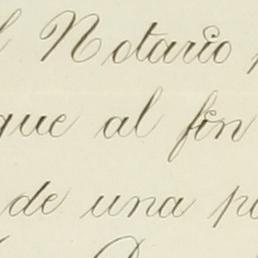 l Notario
que al fin
de una